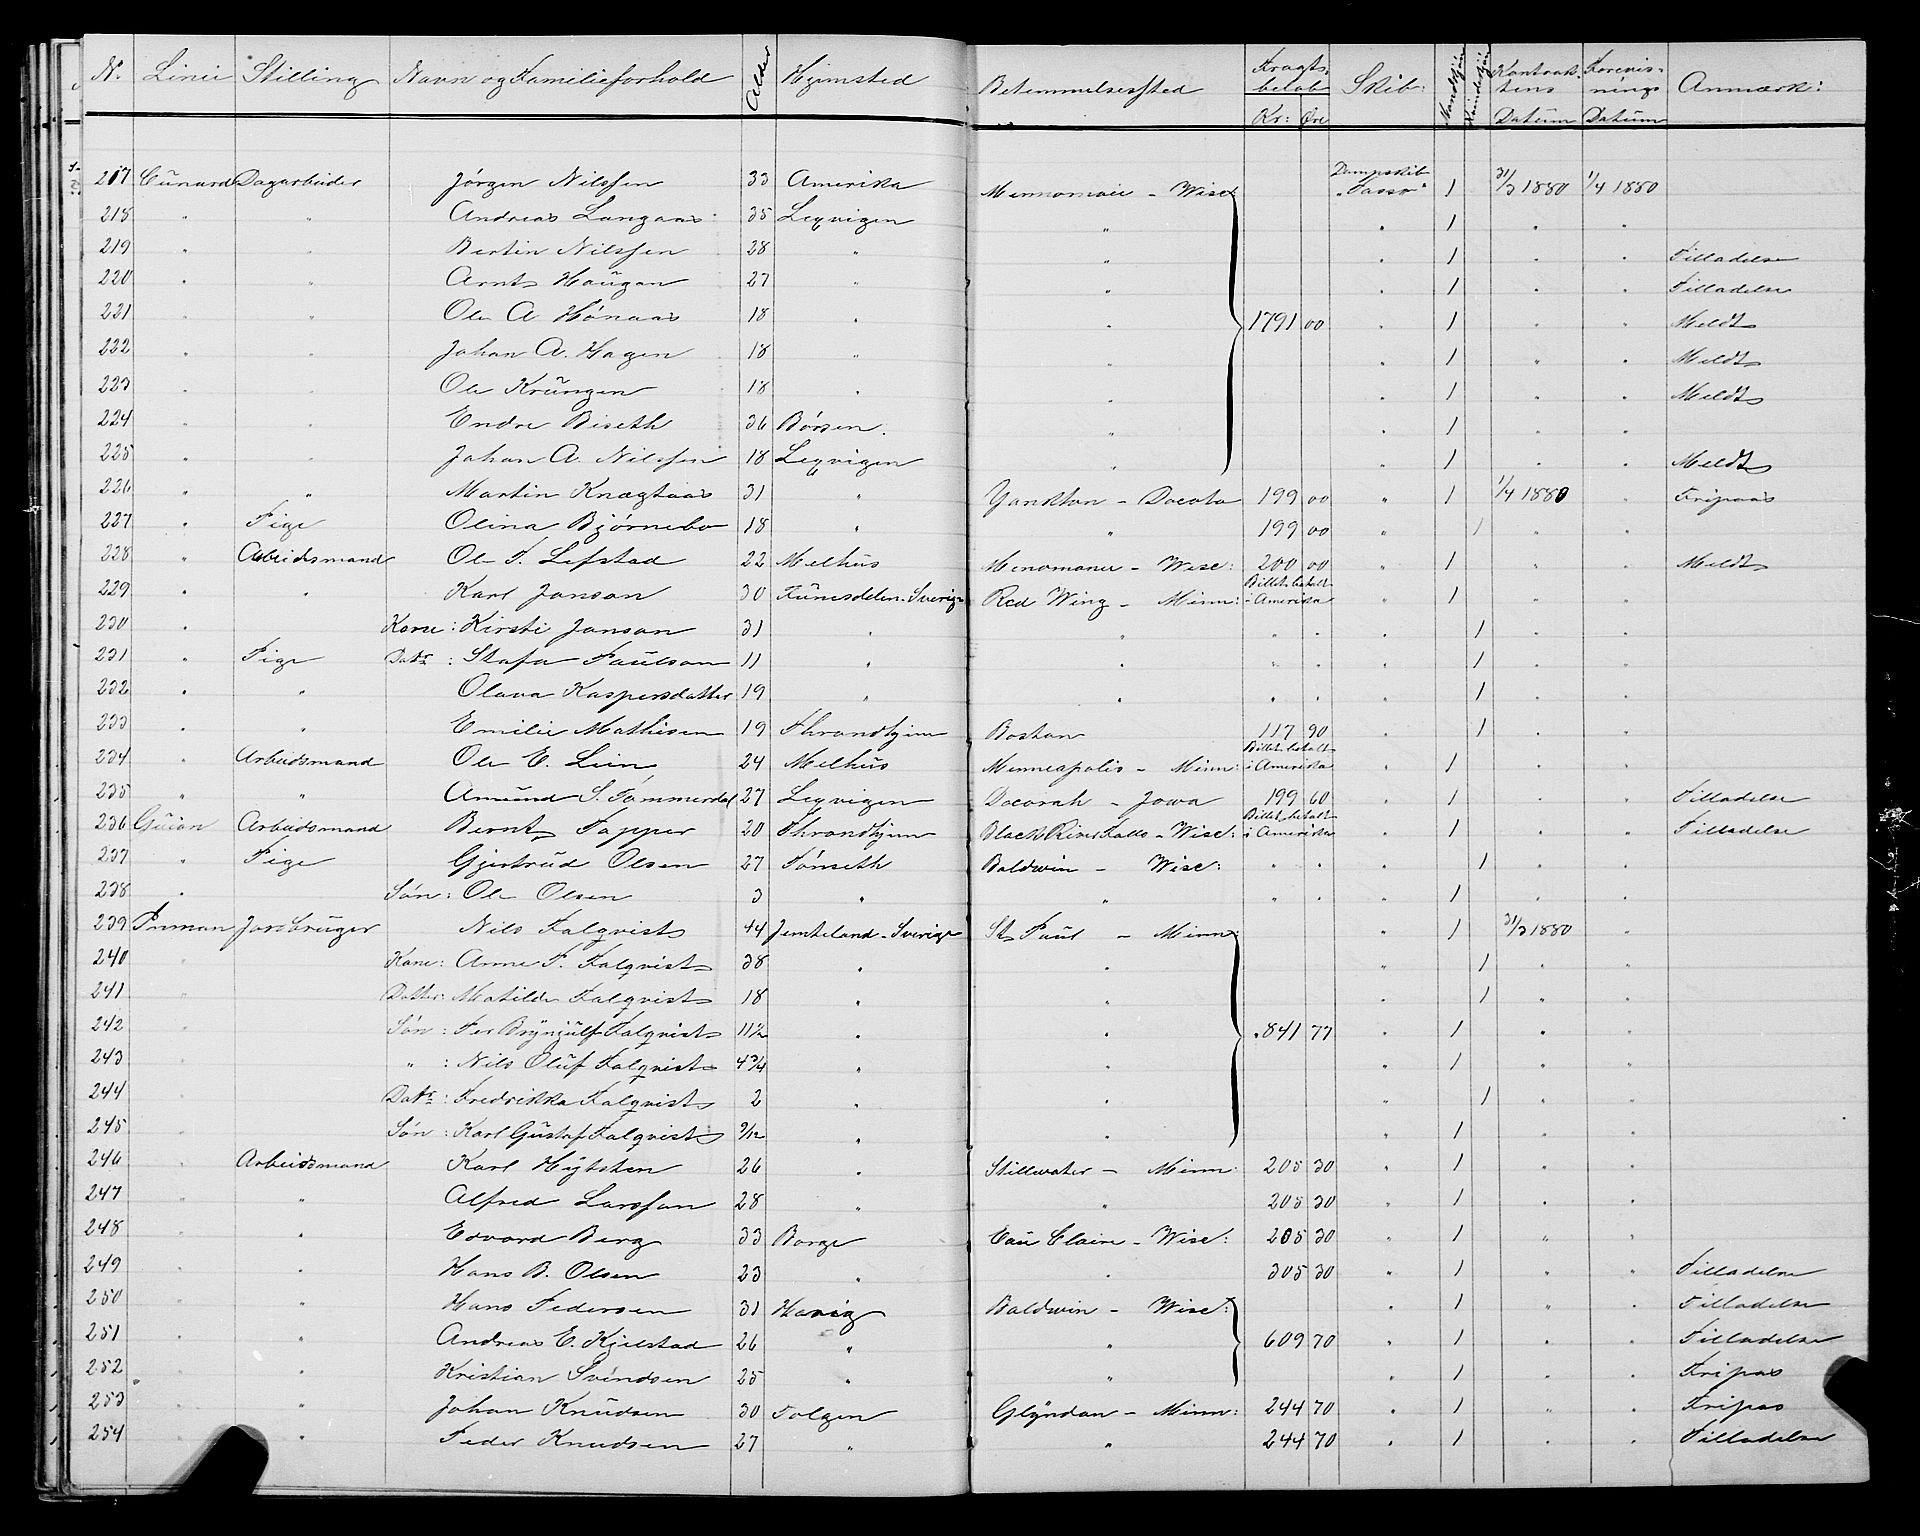 No. Linie Stilling Navn og Familieforhold Alder Hjemsted Bestemmelsessted Fragtbeløb Kr: Øre Skib: Mandkjøn Kvindekjøn Kontraktens Datum Forevisnings Datum Anmærk:
217 Cunard Dagarbeider Jørgen Nilssen 33 Amerika Mennomoie - Wisc Dampskib "Tasso" 1 31/3 1880 1/4 1880
218 " " Andreas Langaas 35 Leqvigen " " 1 " "
219 " " Bertin Nilssen 28 " " " 1 " " Tilladelse
220 " " Arnt Haugan 27 " " " 1 " " Tilladelse
221 " " Ole A Hønaas 18 " " 1791 00 " 1 " " Meldt
222 " " Johan A. Hagen 18 " " " 1 " " Meldt
223 " " Ole Krüngen 18 " " " 1 " " Meldt
224 " " Endre Biseth 36 Børsen. " " 1 " "
225 " " Johan A. Nilssen 18 Leqvigen " " 1 " " Meldt
226 " " Martin Knægtaas 31 " Yankton - Dacota 199 00 " 1 1/4 1880 " Fripas
227 " Pige Olina Bjørnebo 18 " " 199 00 " 1 " "
228 " Arbeidsmand Ole T. Lefstad 22 Melhus Menomanie - Wisc: 200 00 " 1 " " Meldt
229 " " Karl Jonson 30 Funesdalen - Sverige Red Wing - Minn: Billet betalt i Amerika " 1 " "
230 " Kone: Kirsti Jonson 31 " " " " " 1 " "
231 " Pige Datr: Stafa Paulson 11 " " " " " 1 " "
232 " " Olava Kaspersdatter 19 " " " " " 1 " "
233 " " Emilie Mathisen 19 Throndhjem Boston 117 90 " 1 " "
234 " Arbeidsmand Ole E. Lien 24 Melhus Minneapolis - Minn: Billet betalt i Amerika " 1 " "
235 " " Amund S. Tømmerdal 27 Leqvigen Decorah - Jowa 199 60 " 1 " " Tilladelse
236 Guion Arbeidsmand Bernt Tapper 20 Throndhjem Black River Falls - Wisc: Billet betalt i Amerika " 1 " " Tilladelse
237 " Pige Gjertrud Olsen 27 Tønseth Baldwin - Wisc: " " " 1 " "
238 " Søn: Ole Olsen 3 " " " " " 1 " "
239 Inman Jordbruger Nils Falqvist 44 Jemteland - Sverige St Paul - Minn: " 1 31/3 1880 "
240 " Kone: Anne P. Falqvist 38 " " " 1 " "
241 " Datter: Matilde Falqvist 18 " " " 1 " "
242 " Søn: Per Brynjulf Falqvist 11 1/2 " " 841 77 " 1 " "
243 " " : Nils Oluf Falqvist 4 3/4 " " " 1 " "
244 " Datr: Fredrikka Falqvist 2 " " " 1 " "
245 " Søn: Karl Gustaf Falqvist 9/12 " " " 1 " "
246 " Arbeidsmand Karl Hytsten 26 " Stillwater - Minn: 205 30 " 1 " "
247 " " Alfred Larsson 28 " " 205 30 " 1 " "
248 " " Edvard Berg 33 Borge Eau Claire - Wisc: 205 30 " 1 " "
249 " " Hans B. Olsen 23 " " 305 30 " 1 " " Tilladelse
250 " " Hans Pedersen 31 Havig Baldwin - Wisc: " 1 " " Tilladelse
251 " " Andreas E. Kjelstad 26 " " 609 70 " 1 " " Tilladelse
252 " " Kristian Svendsen 25 " " " 1 " " Fripas
253 " " Johan Knudsen 30 Tolgen Glyndon - Minn: 244 70 " 1 " " Fripas
254 " " Peder Knudsen 27 " " 244 70 " 1 " " Tilladelse